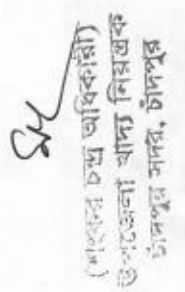 চন্দ্র অধিকারী)
উপজেলা খাদ্য নিয়ন্ত্রক
চাঁদপুর সদর, চাঁদপুর